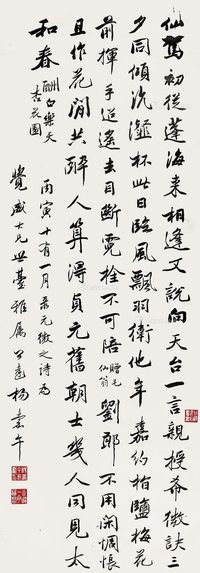 仙駕初從蓬海來相逢又說向天台一言親授希微訣三
夕同傾沆瀣杯此日臨風飄羽衛他年嘉約指鹽梅花
前揮手迢遙去目斷霓旌不可陪 贈毛仙翁 劉郎不用閑惆悵
且作花間共醉人算得貞元舊朝士幾人同見太
和春 酬白樂天杏花園 丙寅十有一月录元微之詩為
覺盛世臺雅屬 楊